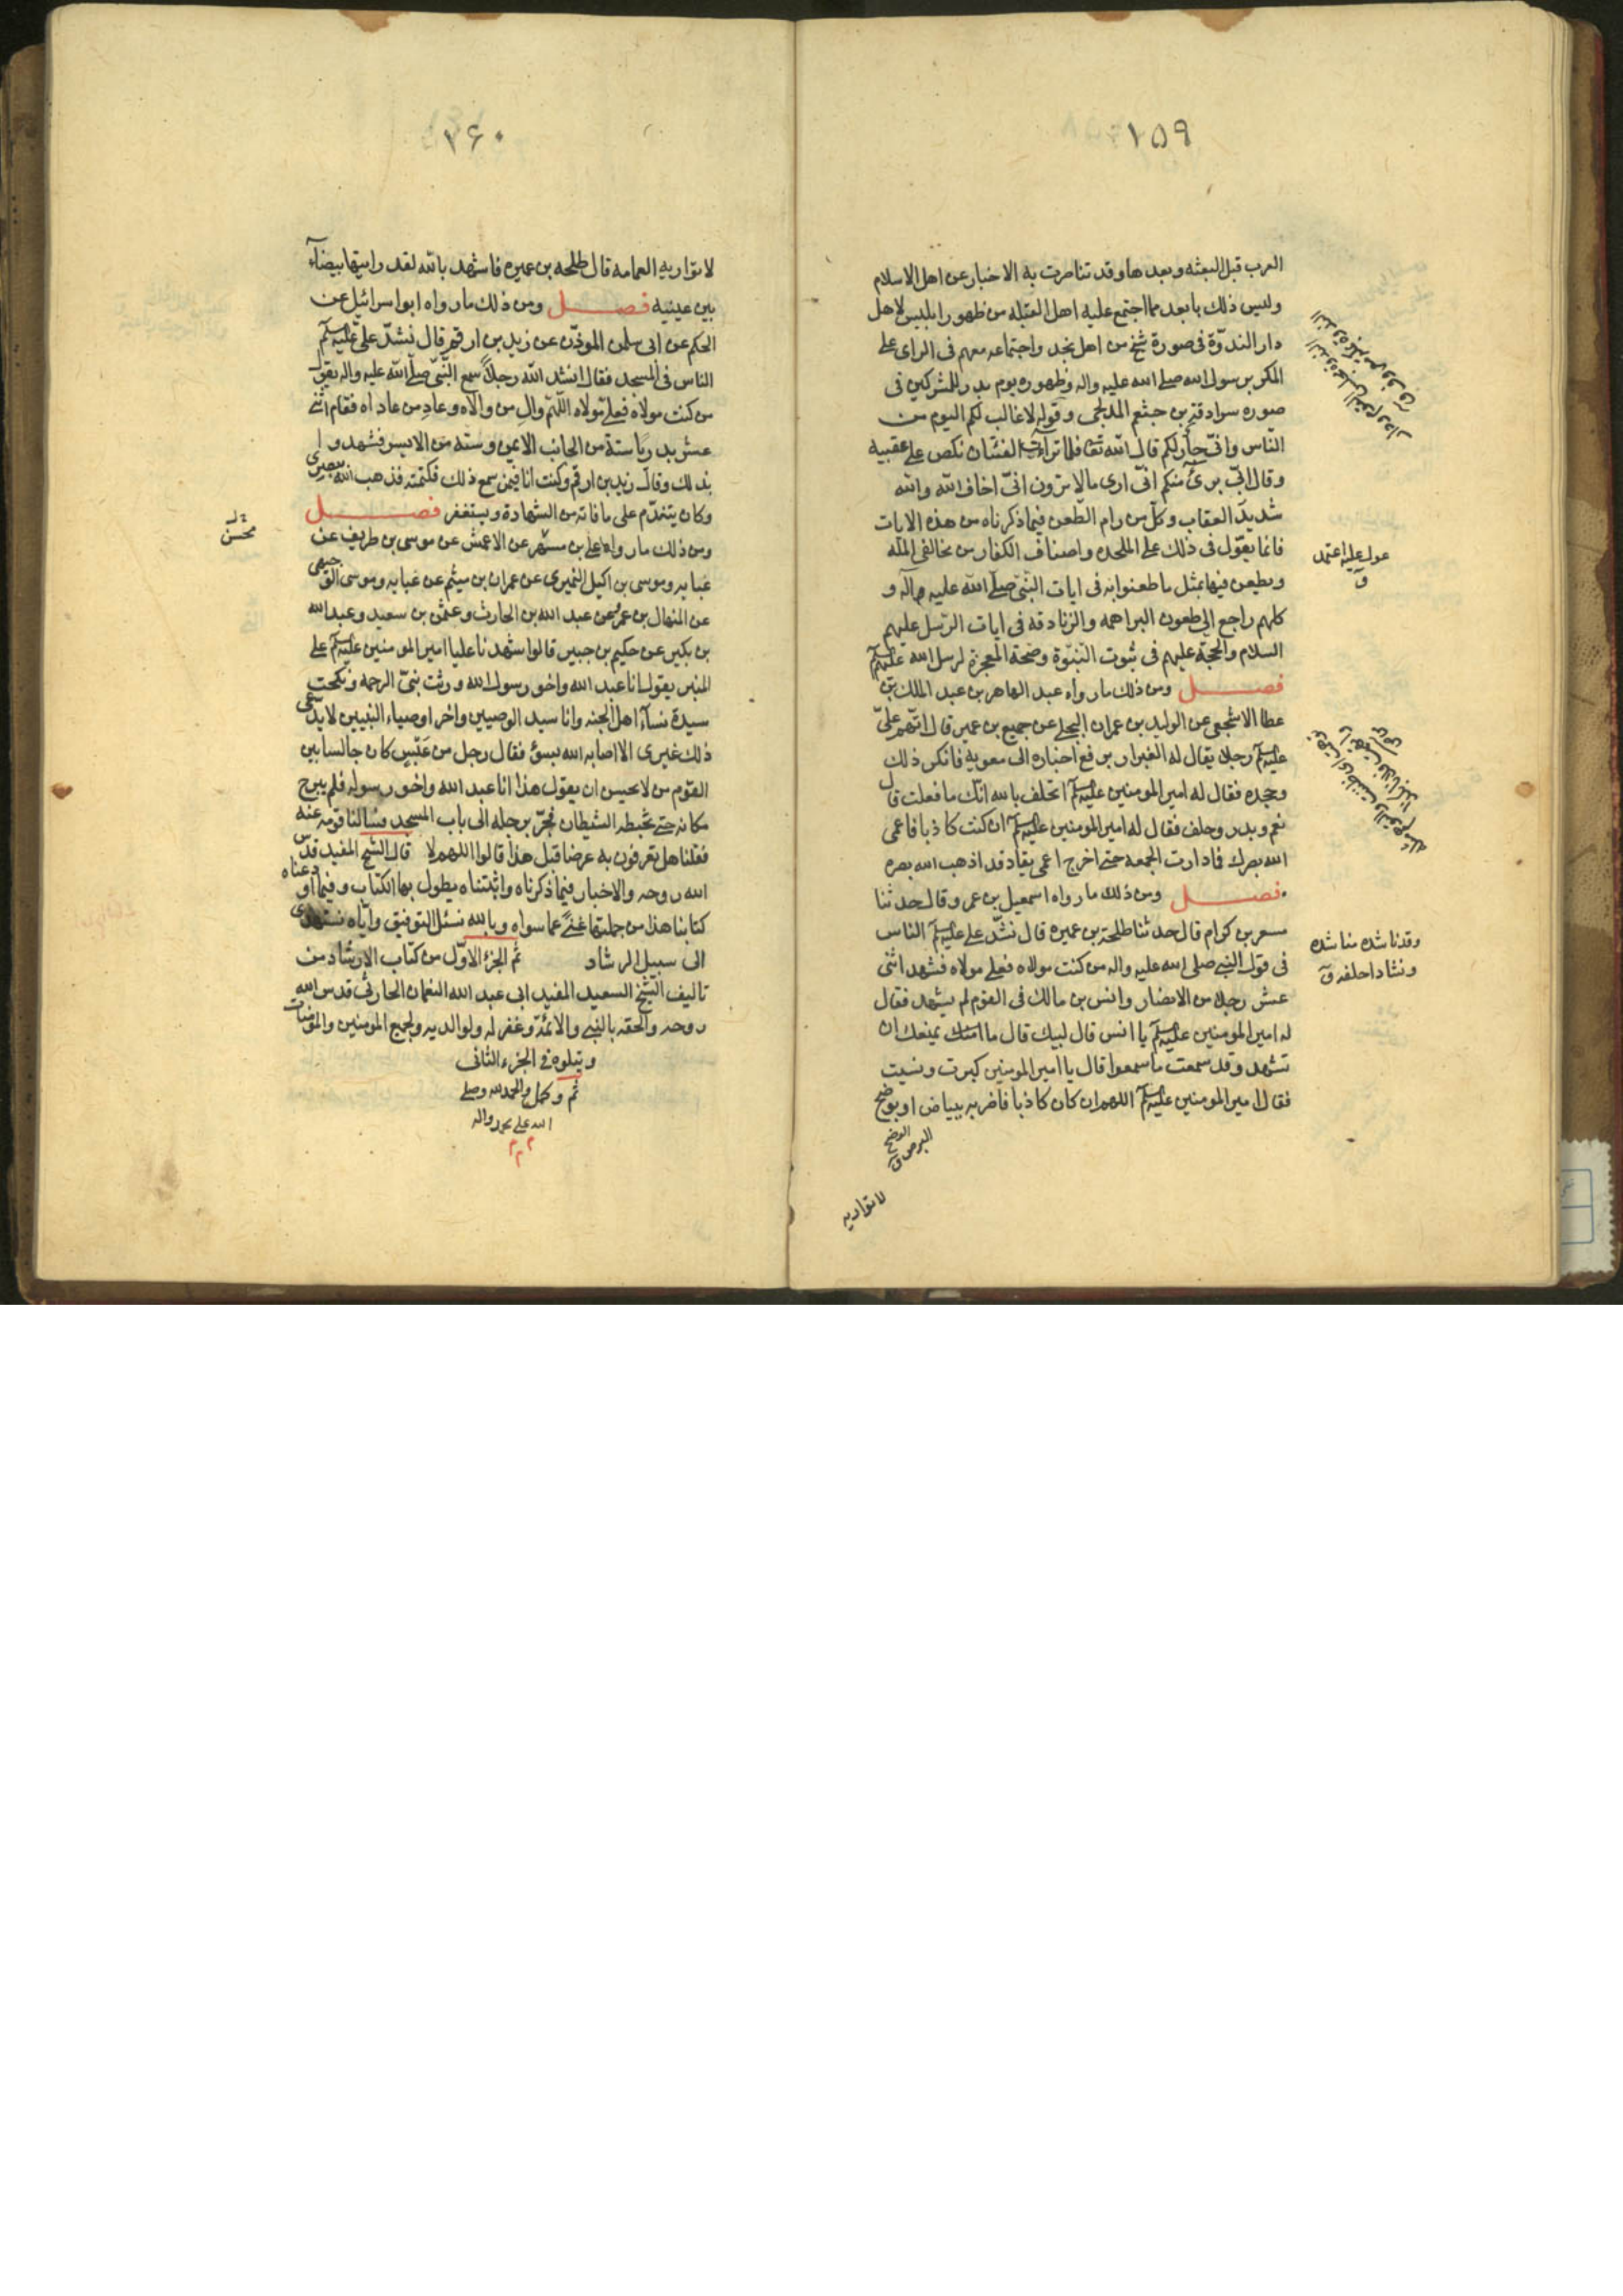 ١۵٩
العرب قبل البعثه وبعدها وقد تناصرت به الاخبار عن اهل الاسلام
وليس ذلك بابعد مما اجتمع عليه اهل القبله من ظهور ابليس لاهل
دار الندوّة فى صورة شيخ من اهل نجد واجتماعه معهم فى الراى على
المكر برسول الله صلى الله عليه واله وظهوره يوم بدر للمشركين فى
صوره سراقة بن جشعم المدلجى وقوله لا غالب لكم اليوم من
النّاس وانّى جار لكم قال الله تعا فلما تراءت الفئتان نكص على عقبيه
وقال انّى برئ منكم انّى ارى ما لا ترون انّى اخاف الله والله
شديد العقاب وكلّ من رام الطّعن فيما ذكرناه من هذه الايات
فانما يعوّل فى ذلك على الملحده واصناف الكفار من مخالفى الملّه
ويطعن فيها بمثل ما طعنوا به فى ايات النبىّ صلى الله عليه واله و
كلهم راجع الى طعون البراهمه والزنادقه فى ايات الرّسل عليهم
السلام والحجة عليهم فى ثبوت النّبوّة وصحة المعجزة لرسل الله عليهم السلم
فصل ومن ذلك ما رواه عبد القاهر بن عبد الملك بن
عطا الاشجعى عن الوليد بن عمران البجلى عن جميع بن عمير قال اتّهم علىّ
عليه السلم رجلا يقال له الغيرار برفع اخباره الى معويه فانكر ذلك
وجحده فقال له امير المومنين عليه السلم اتحلف بالله انّك ما فعلت قال
نعم وبدر وحلف فقال له امير المومنين عليه السلم ان كنت كاذبا فاعمى
الله بصرك فما دارت الجمعه حتى اخرج اعمى يقاد قد اذهب الله بصره
فصل ومن ذلك ما رواه اسمعيل بن عمر وقال حدثنا
مسعر بن كرام قال حدثنا طلحة بن عميره قال نشّد على عليه السلم الناس
فى قول النبى صلى الله عليه واله من كنت مولاه فعلى مولاه فشهد اثنى
عشر رجلا من الانصار وانس بن مالك فى القوم لم يشهد فقال
له امير المومنين عليه السلم يا انس قال لبيك قال ما يمنعك ان
تشهد وقد سمعت ما سمعوا قال يا امير المومنين كبرت ونسيت
فقال امير المومنين عليه السلم اللهم ان كان كاذبا فاضربه ببياض او بوضح
الوضح
البرص ق
لا تواريه
عول عليه اعتمد
ق
وقد ناشده مناشده
ونشادا حلفه ق
١۶٠
لا تواريه العمامه قال طلحه بن عميره فاشهد بالله لقد رايتها بيضآء
بين عينيه فصل ومن ذلك ما رواه ابو اسرائيل عن
الحكم عن ابى سلمن الموذّن عن زيد بن ارقم قال نشّد على عليه السلم
الناس فى المسجد فقال انشد الله رجلاً سمع النّبى صلى الله عليه واله يقول
من كنت مولاه فعلىّ مولاه اللّهمّ والِ من والاه وعادِ من عاداه فقام اثنى
عشر بدريا ستة من الجانب الايمن وسته من الايسر فشهدوا
بذلك وقال زيد بن ارقم وكنت انا فيمن سمع ذلك فكتمته فذهب الله ببصرى
وكان يتندّم على ما فاته من الشهادة ويستغفر فصل
ومن ذلك ما رواه على بن مسهر عن الاعمش عن موسى بن طريف عن
عبايه وموسى بن اكيل النميرى عن عمران بن ميثم عن عبايه وموسى الوجيهى
عن المنهال بن عمرو عن عبد الله بن الحارث وعثمن بن سعيد وعبد الله
بن بكير عن حكيم بن جبير قالوا شهدنا عليا امير المومنين عليه السلم على
المنبر يقول انا عبد الله واخو رسول الله ورثت نبىّ الرحمه ونكحت
سيدة نسآء اهل الجنه وانا سيد الوصيين واخر اوصياء النبيين لا يدّعى
ذلك غيرى الا اصابه الله بسوء فقال رجل من عَبْسٍ كان جالسا بين
القوم من لا يحسن ان يقول هذا انا عبد الله واخو رسوله فلم يبرح
مكانه حتى تخبطه الشيطان فجرّ برجله الى باب المسجد فسالنا قومه عنه
فقلنا هل تعرفون به عرضا قبل هذا قالوا اللهم لا قال الشيخ المفيد قدّس
الله روحه والاخبار فيما ذكرناه واثبتناه يطول بها الكتاب وفيما اودعناه
كتابنا هذا من جملتها غنًى عما سواه وبالله نسئل التوفيق وايّاه نستهدى
الى سبيل الرشاد تم الجزء الاوّل من كتاب الارشاد من
تاليف الشيخ السعيد المفيد ابى عبد الله النعمان الحارثى قدس الله
روحه والحقه بالنبى والائمّة وغفر له ولوالديه ولجميع المومنين والمومنات
ويتلوه فى الجزء الثانى
تم وكمل والحمد لله وصلى
الله على محمد واله
م م م
محسن